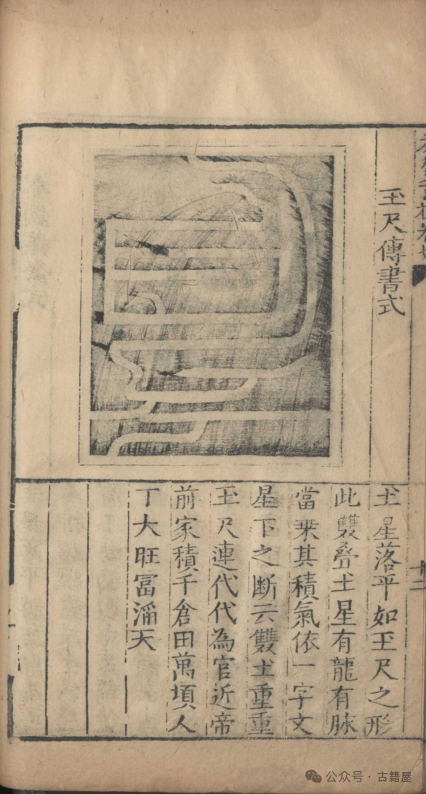 玉尺傳書式
土星落平如玉尺之形
此雙疊土星有龍有脉
當乗其積氣依一字文
星下之断云雙土重重
玉尺連代代為官近帝
前家積千倉田萬頃人
丁大旺冨滔天
公众号·古籍屋